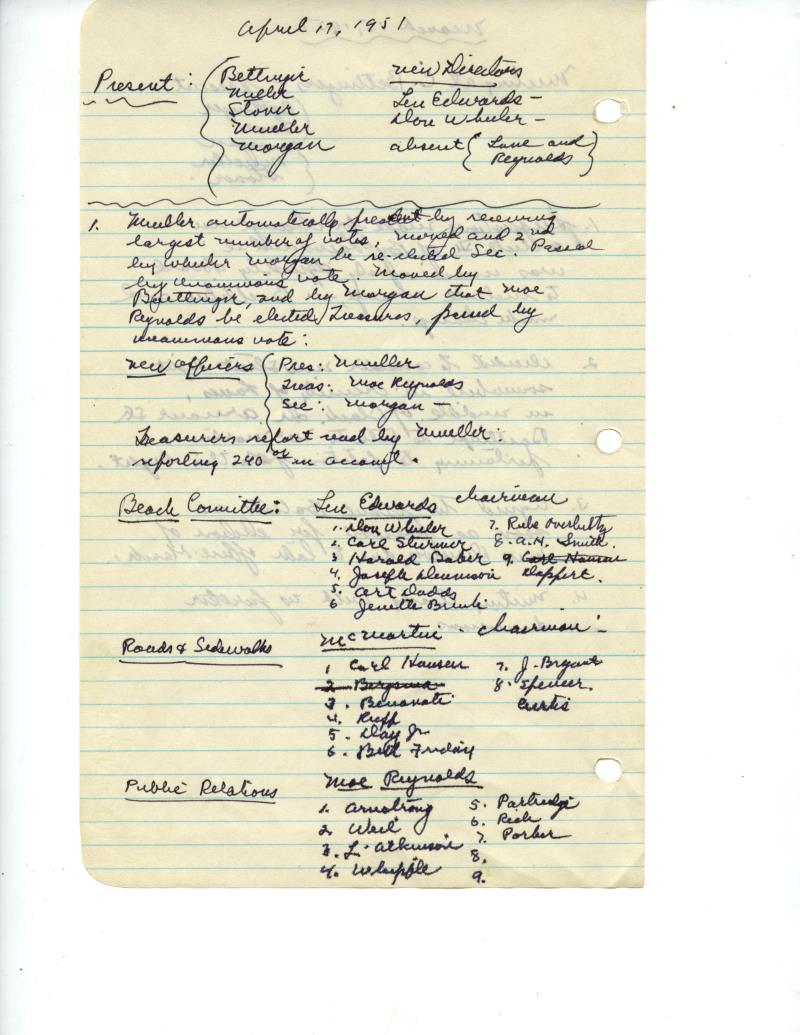 April 17, 1951
Present: Bettingir new Directors
Muller Len Edwards —
Stover Don Wheeler —
Mueller
Morgan absent { Lane and Reynolds }
1. Mueller automatically president by receiving
largest number of votes, moved and 2nd
by Wheeler Morgan be re-elected Sec. Passed
by unanimous vote. Moved by
Boettingir, and by Morgan that Moe
Reynolds be elected Treasurer, passed by
unanimous vote.
new officers Pres: Mueller
Treas: Moe Reynolds
Sec: Morgan —
Treasurers report read by Mueller:
reporting 240 in account.
Beach Committee: Len Edwards chairman
1. Don Wheeler 7. Rube
2. Carl Sturmer 8. A.H. Smith.
3 Harold Baber 9. Carl Hansen
4. Joseph Dennison Dappert.
5. Art Dodds
6 Jenette
Roads & Sidewalks McMartin chairman —
1 Carl Hansen 7. J. Bryant
2 Bergsma 8. Spencer
3. Benavati Curtis
4. Ruff
5. Day Jr.
6. Bill Friday
Public Relations Moe Reynolds
1. Armstrong 5. Partridge
2. Weil 6. Rich
3. L. Atkinson 7. Porber
4. Whipple 8.
9.